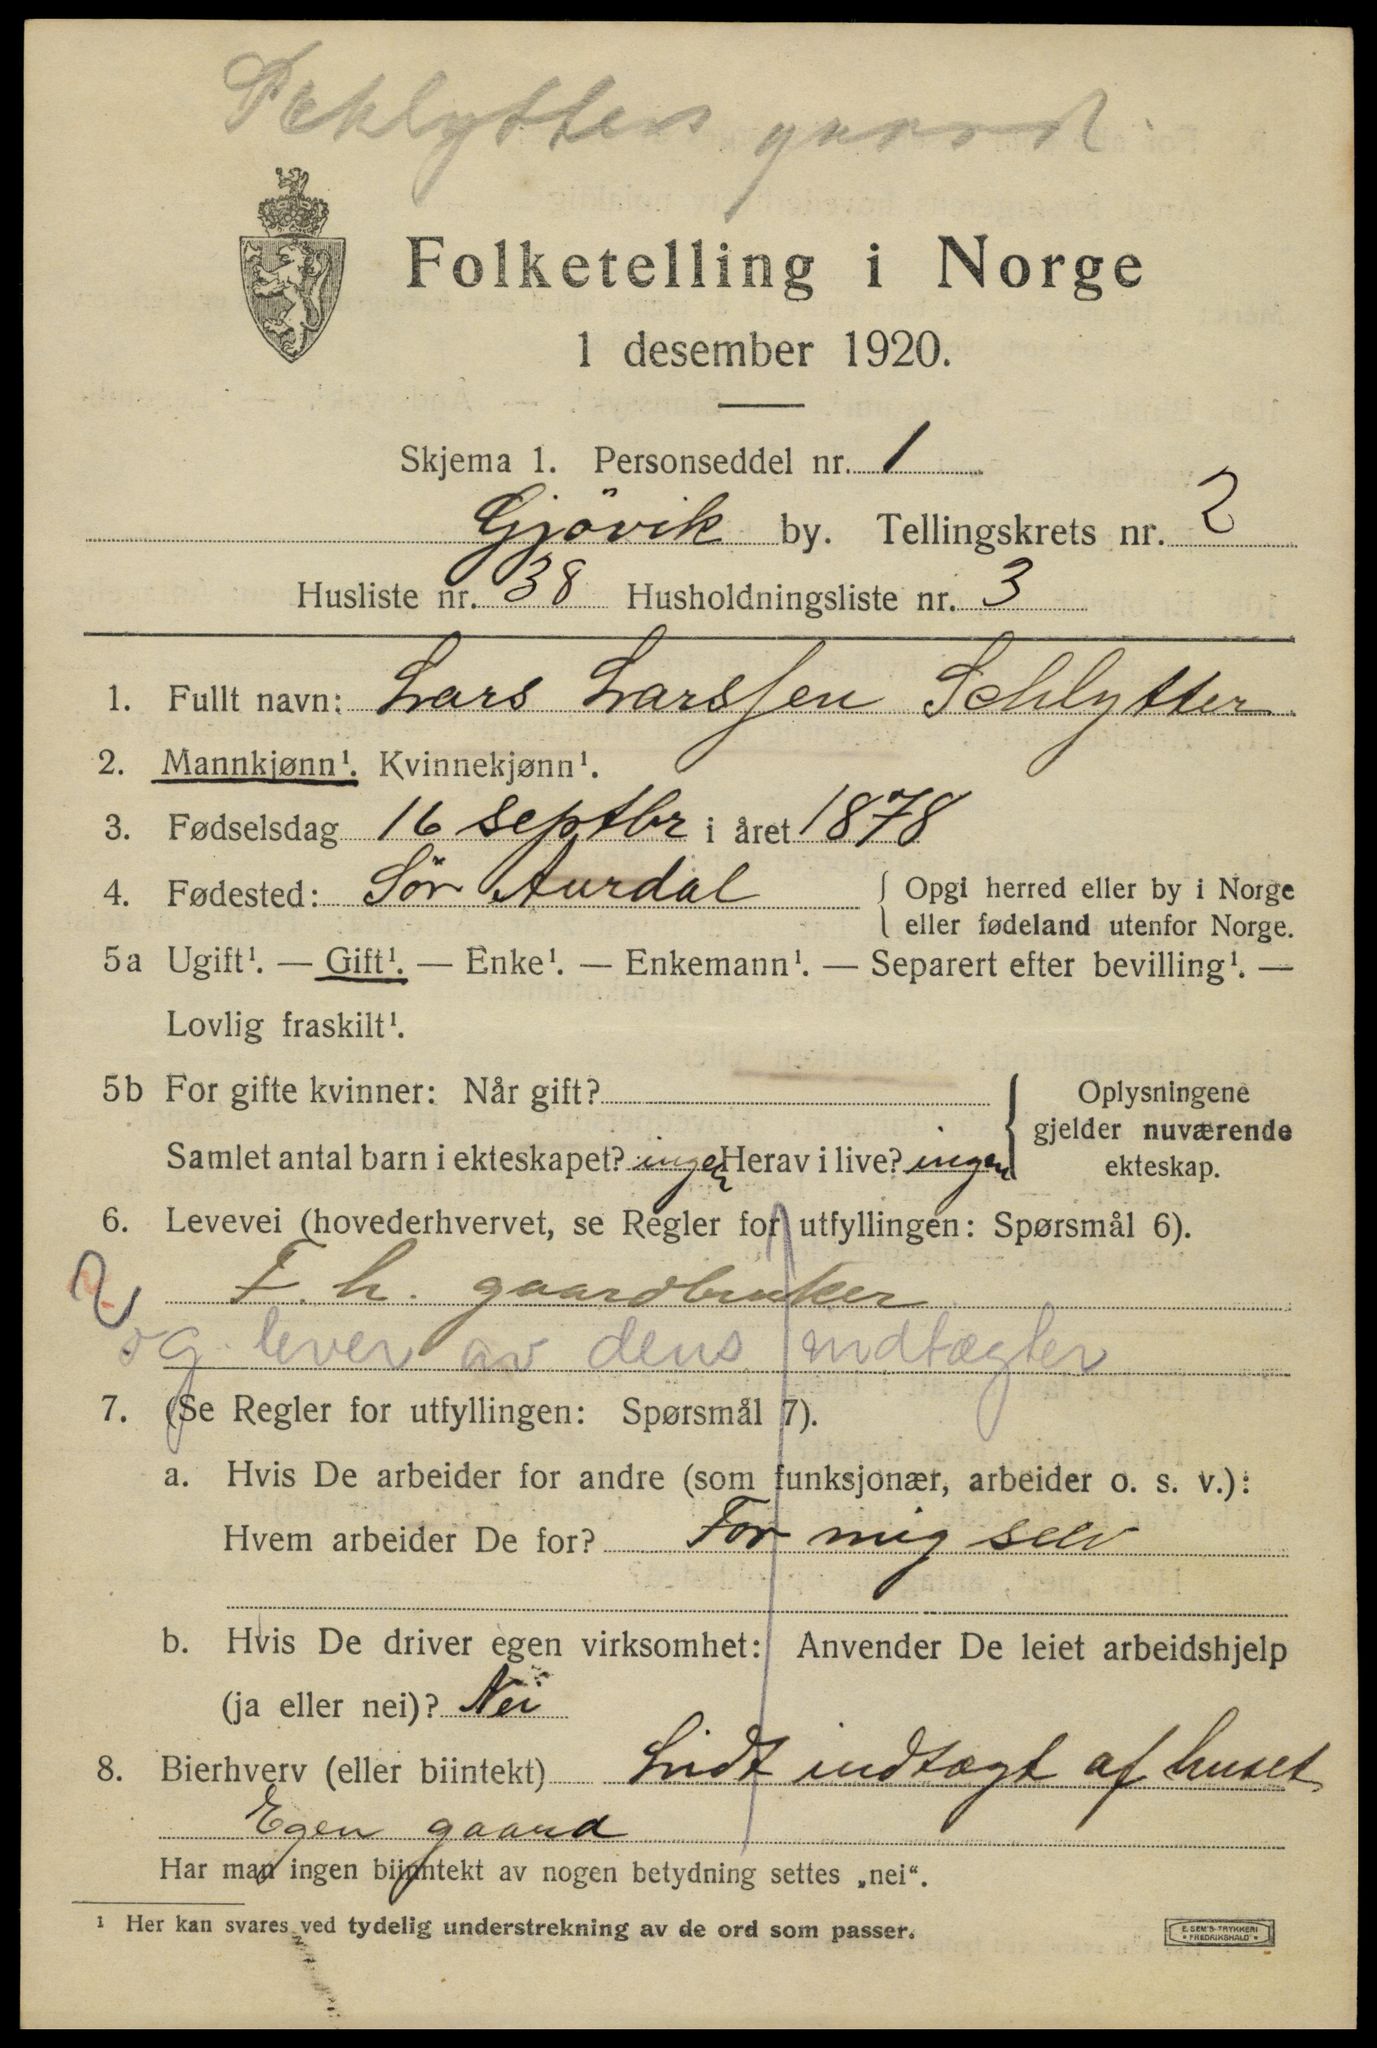 Schlytters gaard.
Folketelling i Norge
1 desember 1920.
Skjema 1. Personseddel nr. 1
Gjövik by. Tellingskrets nr. 2
Husliste nr. 38 Husholdningsliste nr. 3
1. Fullt navn: Lars Larssen Schlytter
2. Mannkjønn¹. Kvinnekjønn¹.
3. Fødselsdag 16 septbr i året 1878
4. Fødested: Sör Aurdal { Opgi herred eller by i Norge
eller fødeland utenfor Norge.
5a Ugift¹. — Gift¹. — Enke¹. — Enkemann¹. — Separert efter bevilling¹. —
Lovlig fraskilt¹.
5b For gifte kvinner: Når gift? { Oplysningene
gjelder nuværende
Samlet antal barn i ekteskapet? ingen Herav i live? ingen ekteskap.
6. Levevei (hovederhvervet, se Regler for utfyllingen: Spørsmål 6).
2 F. h. gaardbruker
og lever av dens indtægter
7. (Se Regler for utfyllingen: Spørsmål 7).
a. Hvis De arbeider for andre (som funksjonær, arbeider o. s. v.):
Hvem arbeider De for? For mig selv
b. Hvis De driver egen virksomhet: Anvender De leiet arbeidshjelp
(ja eller nei)? Nei
8. Bierhverv (eller biintekt) Lidt indtægt af huset
Egen gaard
Har man ingen biinntekt av nogen betydning settes „nei“.
¹ Her kan svares ved tydelig understrekning av de ord som passer.
E. SEM'S TRYKKERI
* FREDRIKSHALD *